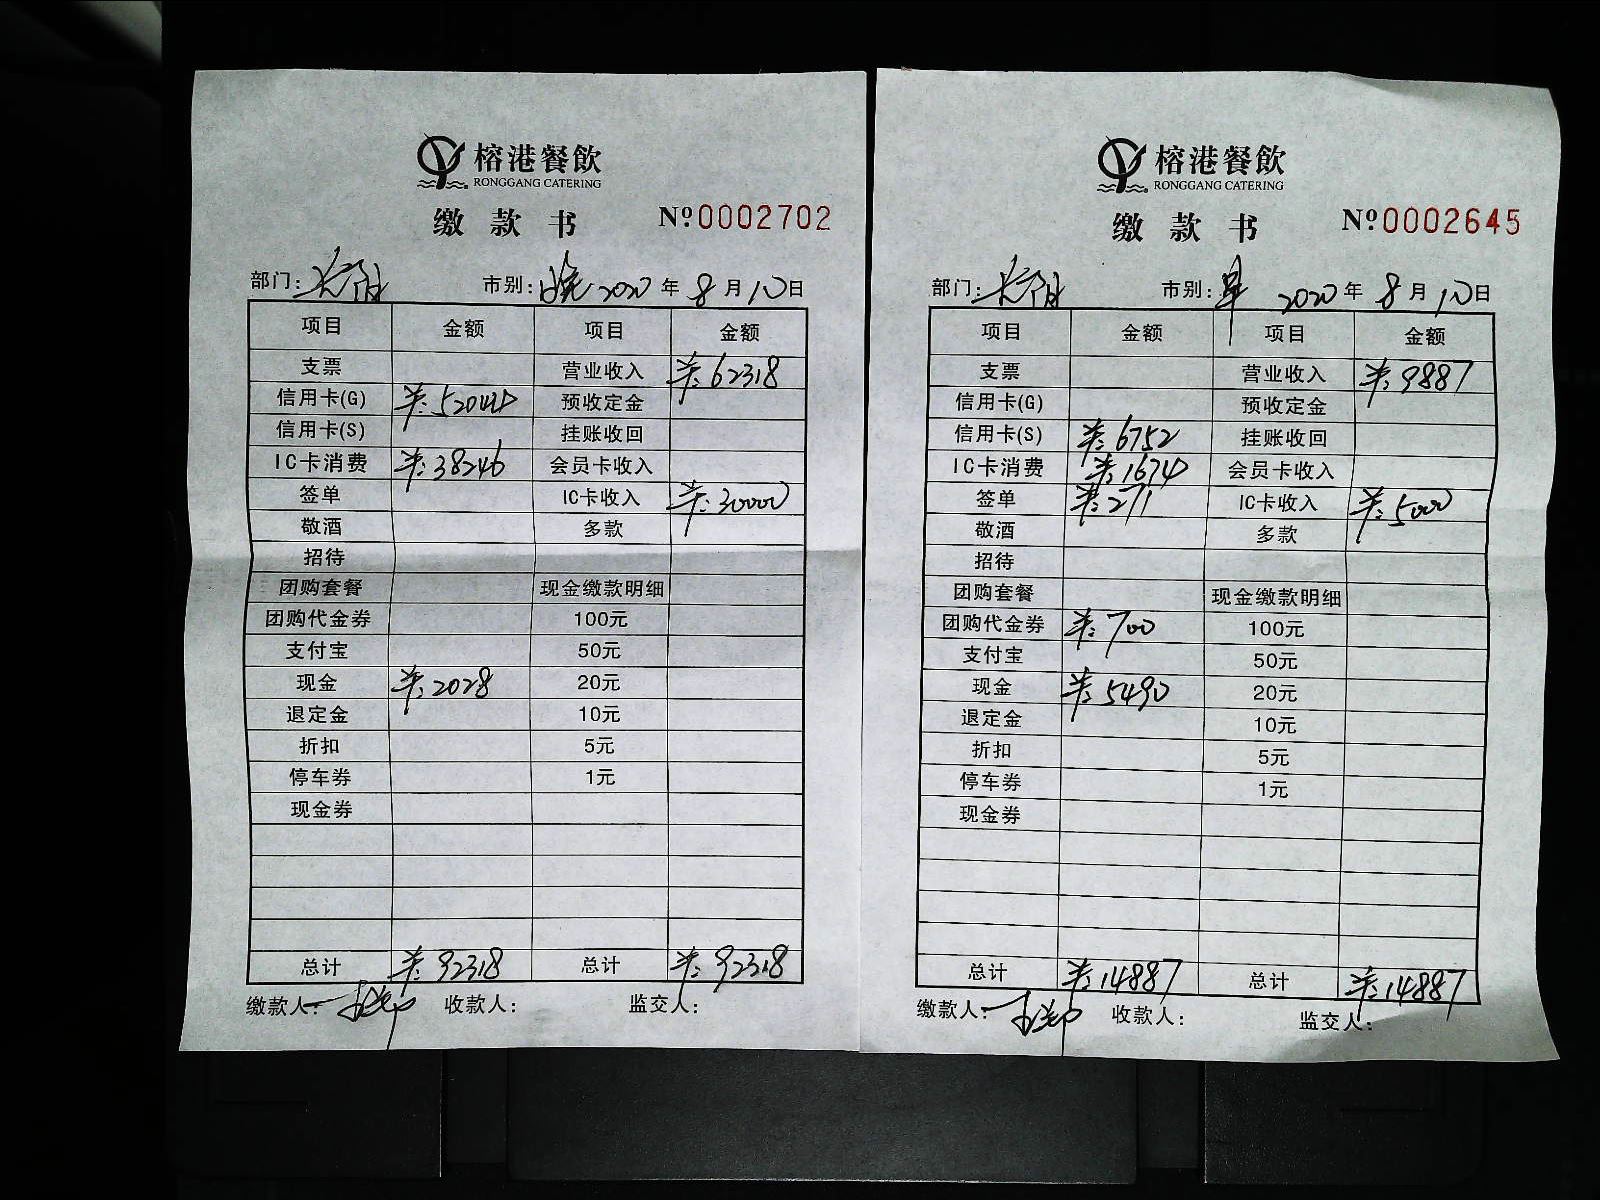 榕港餐飲
RONGGANG CATERING
缴款书 Nº0002702
部门: 市别:晚 2020年8月10日
项目 金额 项目 金额
支票 营业收入 ¥:62318
信用卡(G) ¥:52044 预收定金
信用卡(S) 挂账收回
IC卡消费 ¥:38246 会员卡收入
签单 IC卡收入 ¥:30000
敬酒 多款
招待
团购套餐 现金缴款明细
团购代金券 100元
支付宝 50元
现金 ¥:2028 20元
退定金 10元
折扣 5元
停车券 1元
现金券
总计 ¥:92318 总计 ¥:92318
缴款人: 收款人: 监交人:
榕港餐飲
RONGGANG CATERING
缴款书 Nº0002645
部门: 市别:早 2020年8月10日
项目 金额 项目 金额
支票 营业收入 ¥:9887
信用卡(G) 预收定金
信用卡(S) ¥:6752 挂账收回
IC卡消费 ¥:1674 会员卡收入
签单 ¥:271 IC卡收入 ¥:5000
敬酒 多款
招待
团购套餐 现金缴款明细
团购代金券 ¥:700 100元
支付宝 50元
现金 ¥:5490 20元
退定金 10元
折扣 5元
停车券 1元
现金券
总计 ¥:14887 总计 ¥:14887
缴款人: 收款人: 监交人: